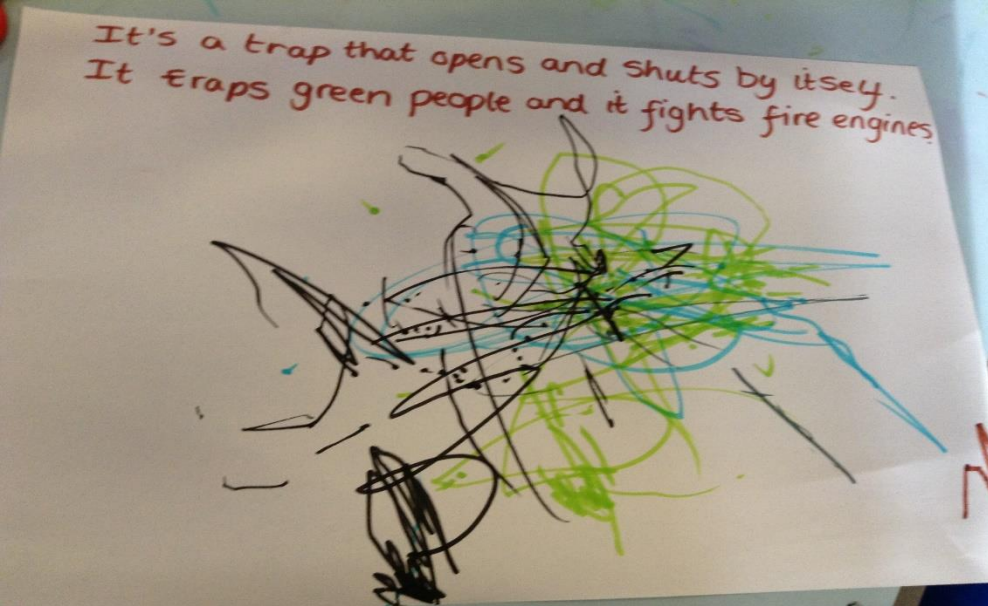 It's a trap that opens and shuts by itself.
It traps green people and it fights fire engines.